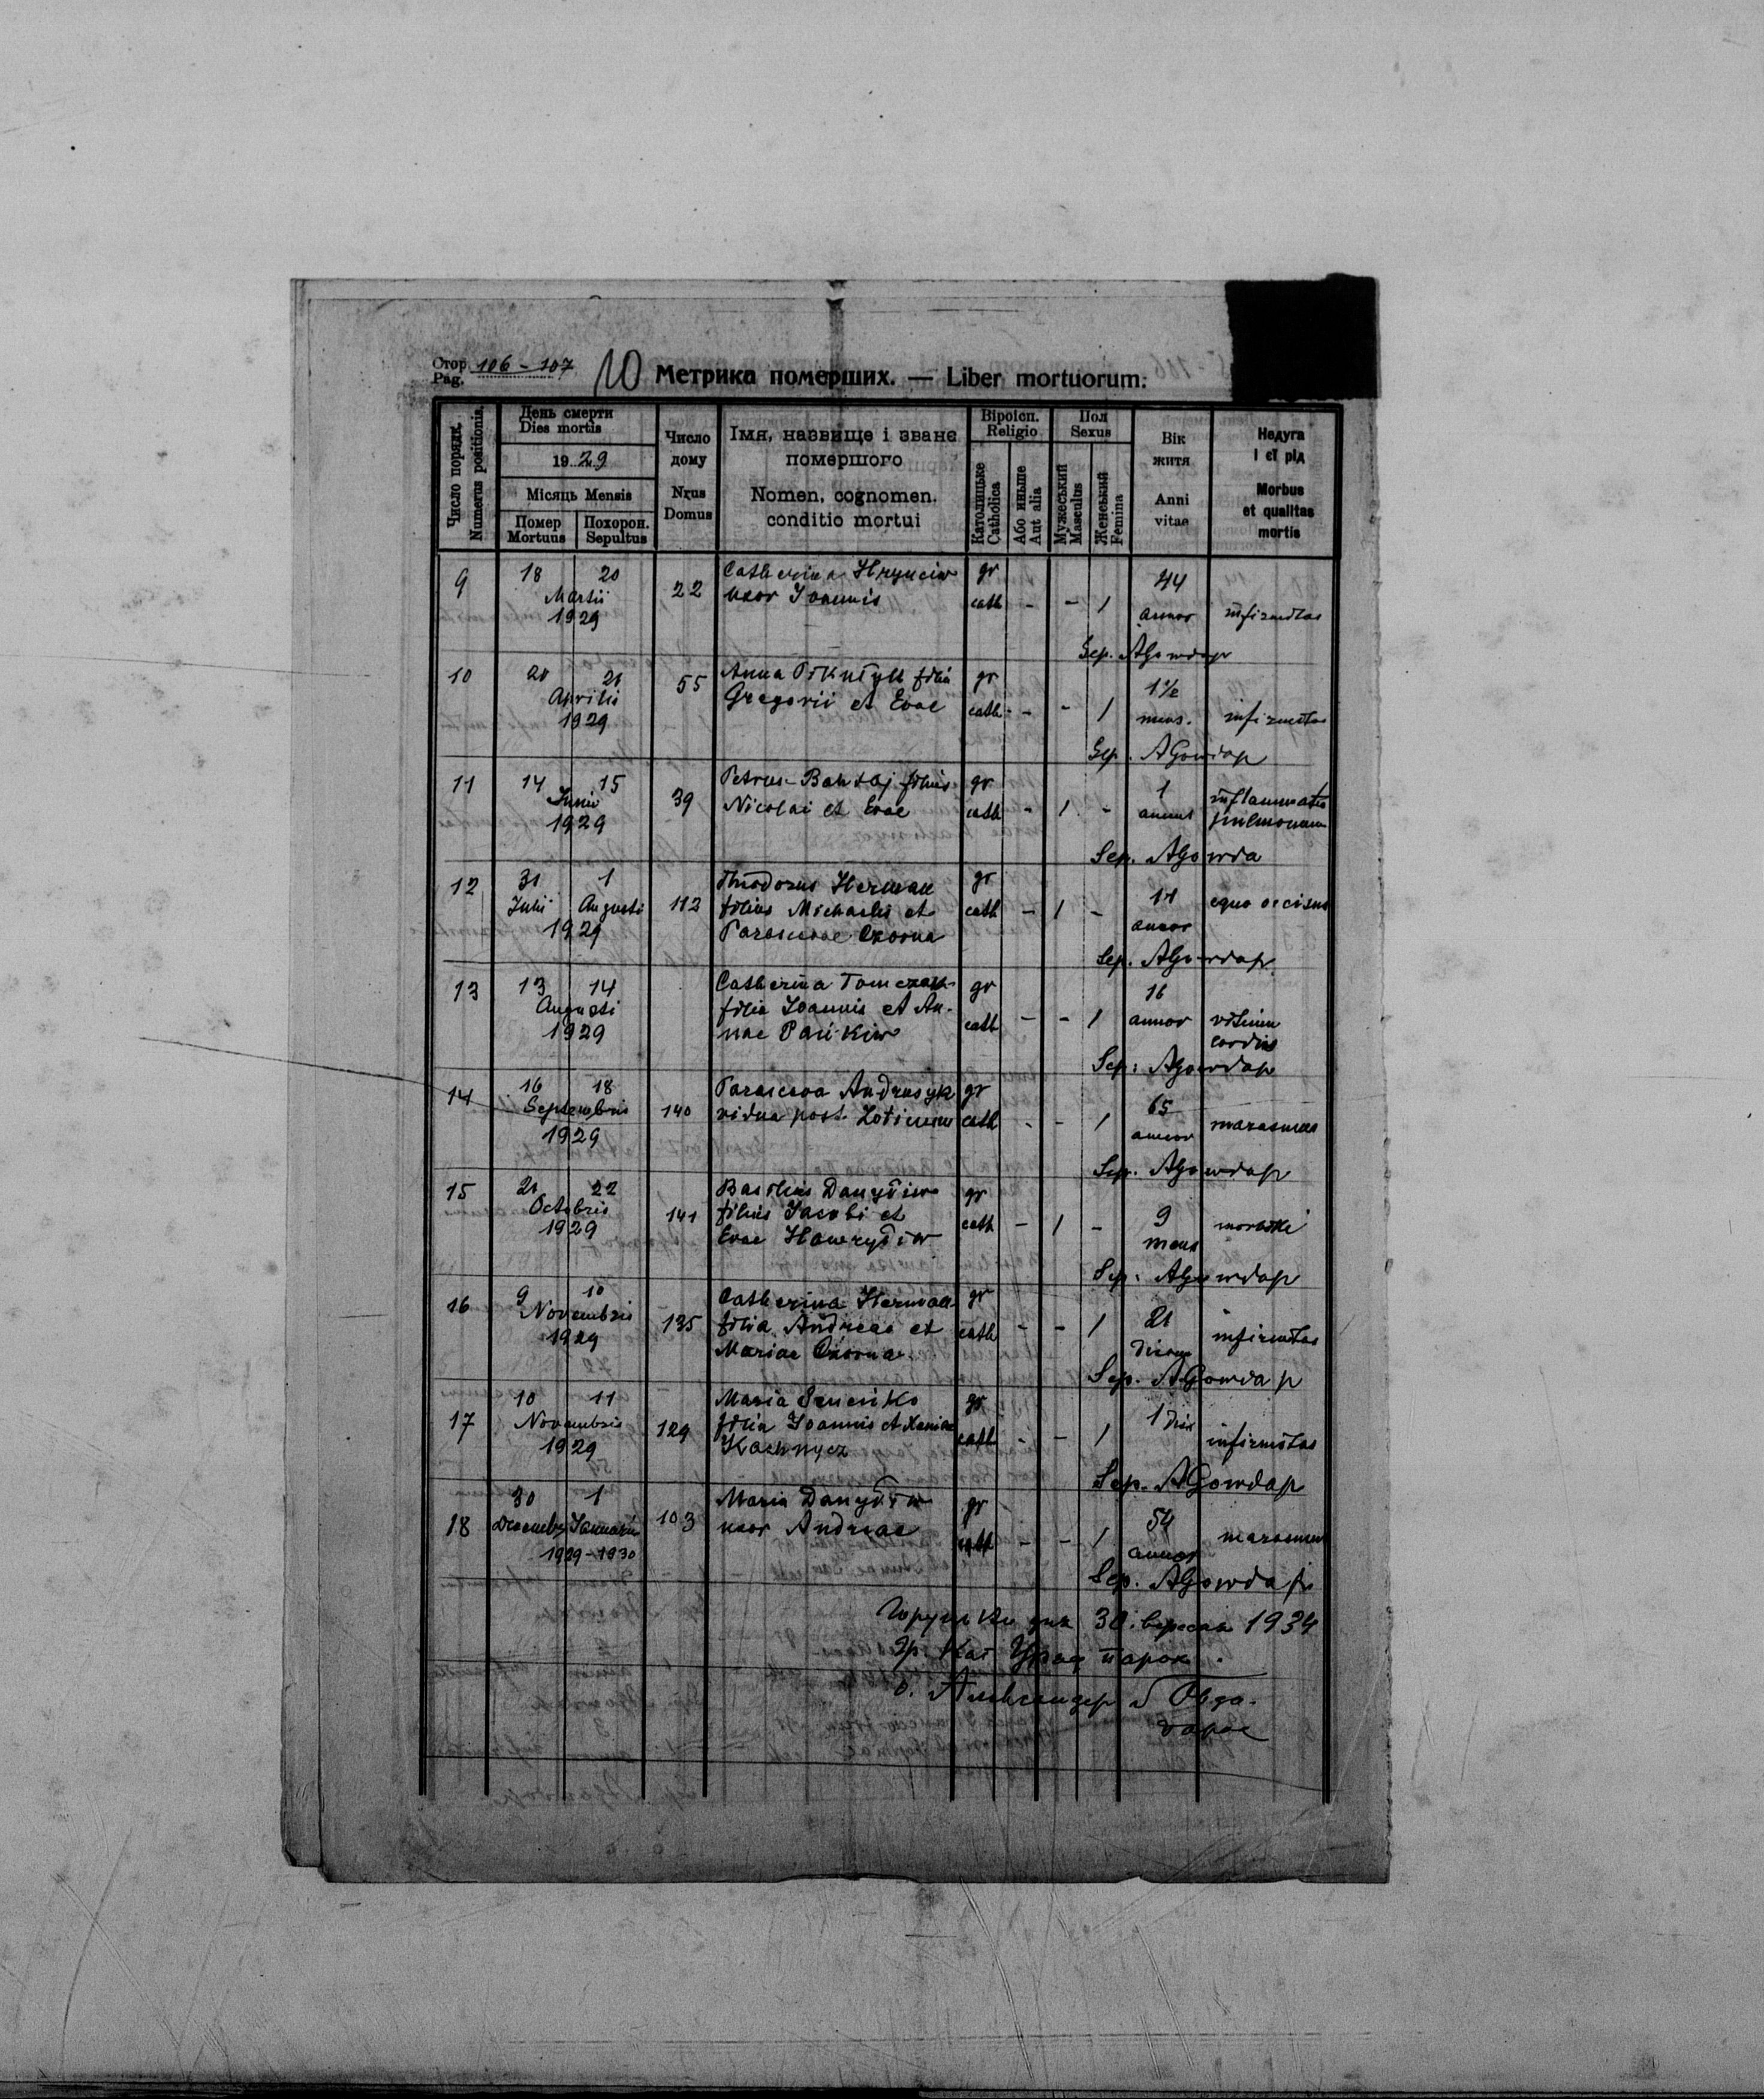 Стор. 106-107
Pag.
10 Метрика померших. — Liber mortuorum.
Число порядк.
Numerus positionis.
День смерти
Dies mortis
1929
Місяць Mensis
Помер
Mortuus
Похорон.
Sepultus
Число
дому
Nrus
Domus
Імя, назвище і званє
помершого
Nomen, cognomen.
conditio mortui
Віроісп.
Religio
Католицьке
Catholica
Або иньше
Aut alia
Пол
Sexus
Мужеський
Masculus
Женський
Femina
Вік
житя
Anni
vitae
Недуга
і єї рід
Morbus
et qualitas
mortis
9 18 20 22 Catherina Hrynciw gr 44
Martii uxor Joannis cath - - 1 annor infirmitas
1929
Sep. AGowdap
10 20 21 55 Anna filia gr 1½
Aprilis Gregorii et Evae cath - - 1 mens. infirmitas
1929
Sep. AGowdap
11 14 15 39 Petrus filius gr 1 inflammatio
Junii Nicolai et Evae cath - 1 - annus pulmonum
1929
Sep. AGowda
12 31 1 112 Theodorus Herman gr 14 equo occisus
Julii Augusti filius Michaelis et cath - 1 - annor
1929 Parascevae
Sep. AGowdap
13 13 14 Catherina Tomczak gr 16
Augusti filia Joannis et An- cath - - 1 annor vitium
1929 nae cordis
Sep. AGowdap
14 16 18 140 Parasceva Andrusyk gr 65
Septembris vidua post cath - - 1 annor marasmus
1929
Sep. AGowdap
15 21 22 141 Basilius Danyliw gr 9
Octobris filius Jacobi et cath - 1 - mens
1929 Evae Hawryliw
Sep. AGowdap
16 9 10 135 Catherina Herman gr 21
Novembris filia Andreae et cath - - 1 dierum infirmitas
1929 Mariae
Sep. AGowdap
17 10 11 129 Maria gr 1 die
Novembris filia Joannis et Xeniae cath - - 1 infirmitas
1929 Kachnycz
Sep. AGowdap
18 30 1 103 Maria Danyliw gr 54
Decembr Januarii uxor Andreae cath - - 1 annor marasmus
1929-1930
Sep. AGowdap
дня 30. вересня 1934
Гр. кат Уряд парох.
о. Александер